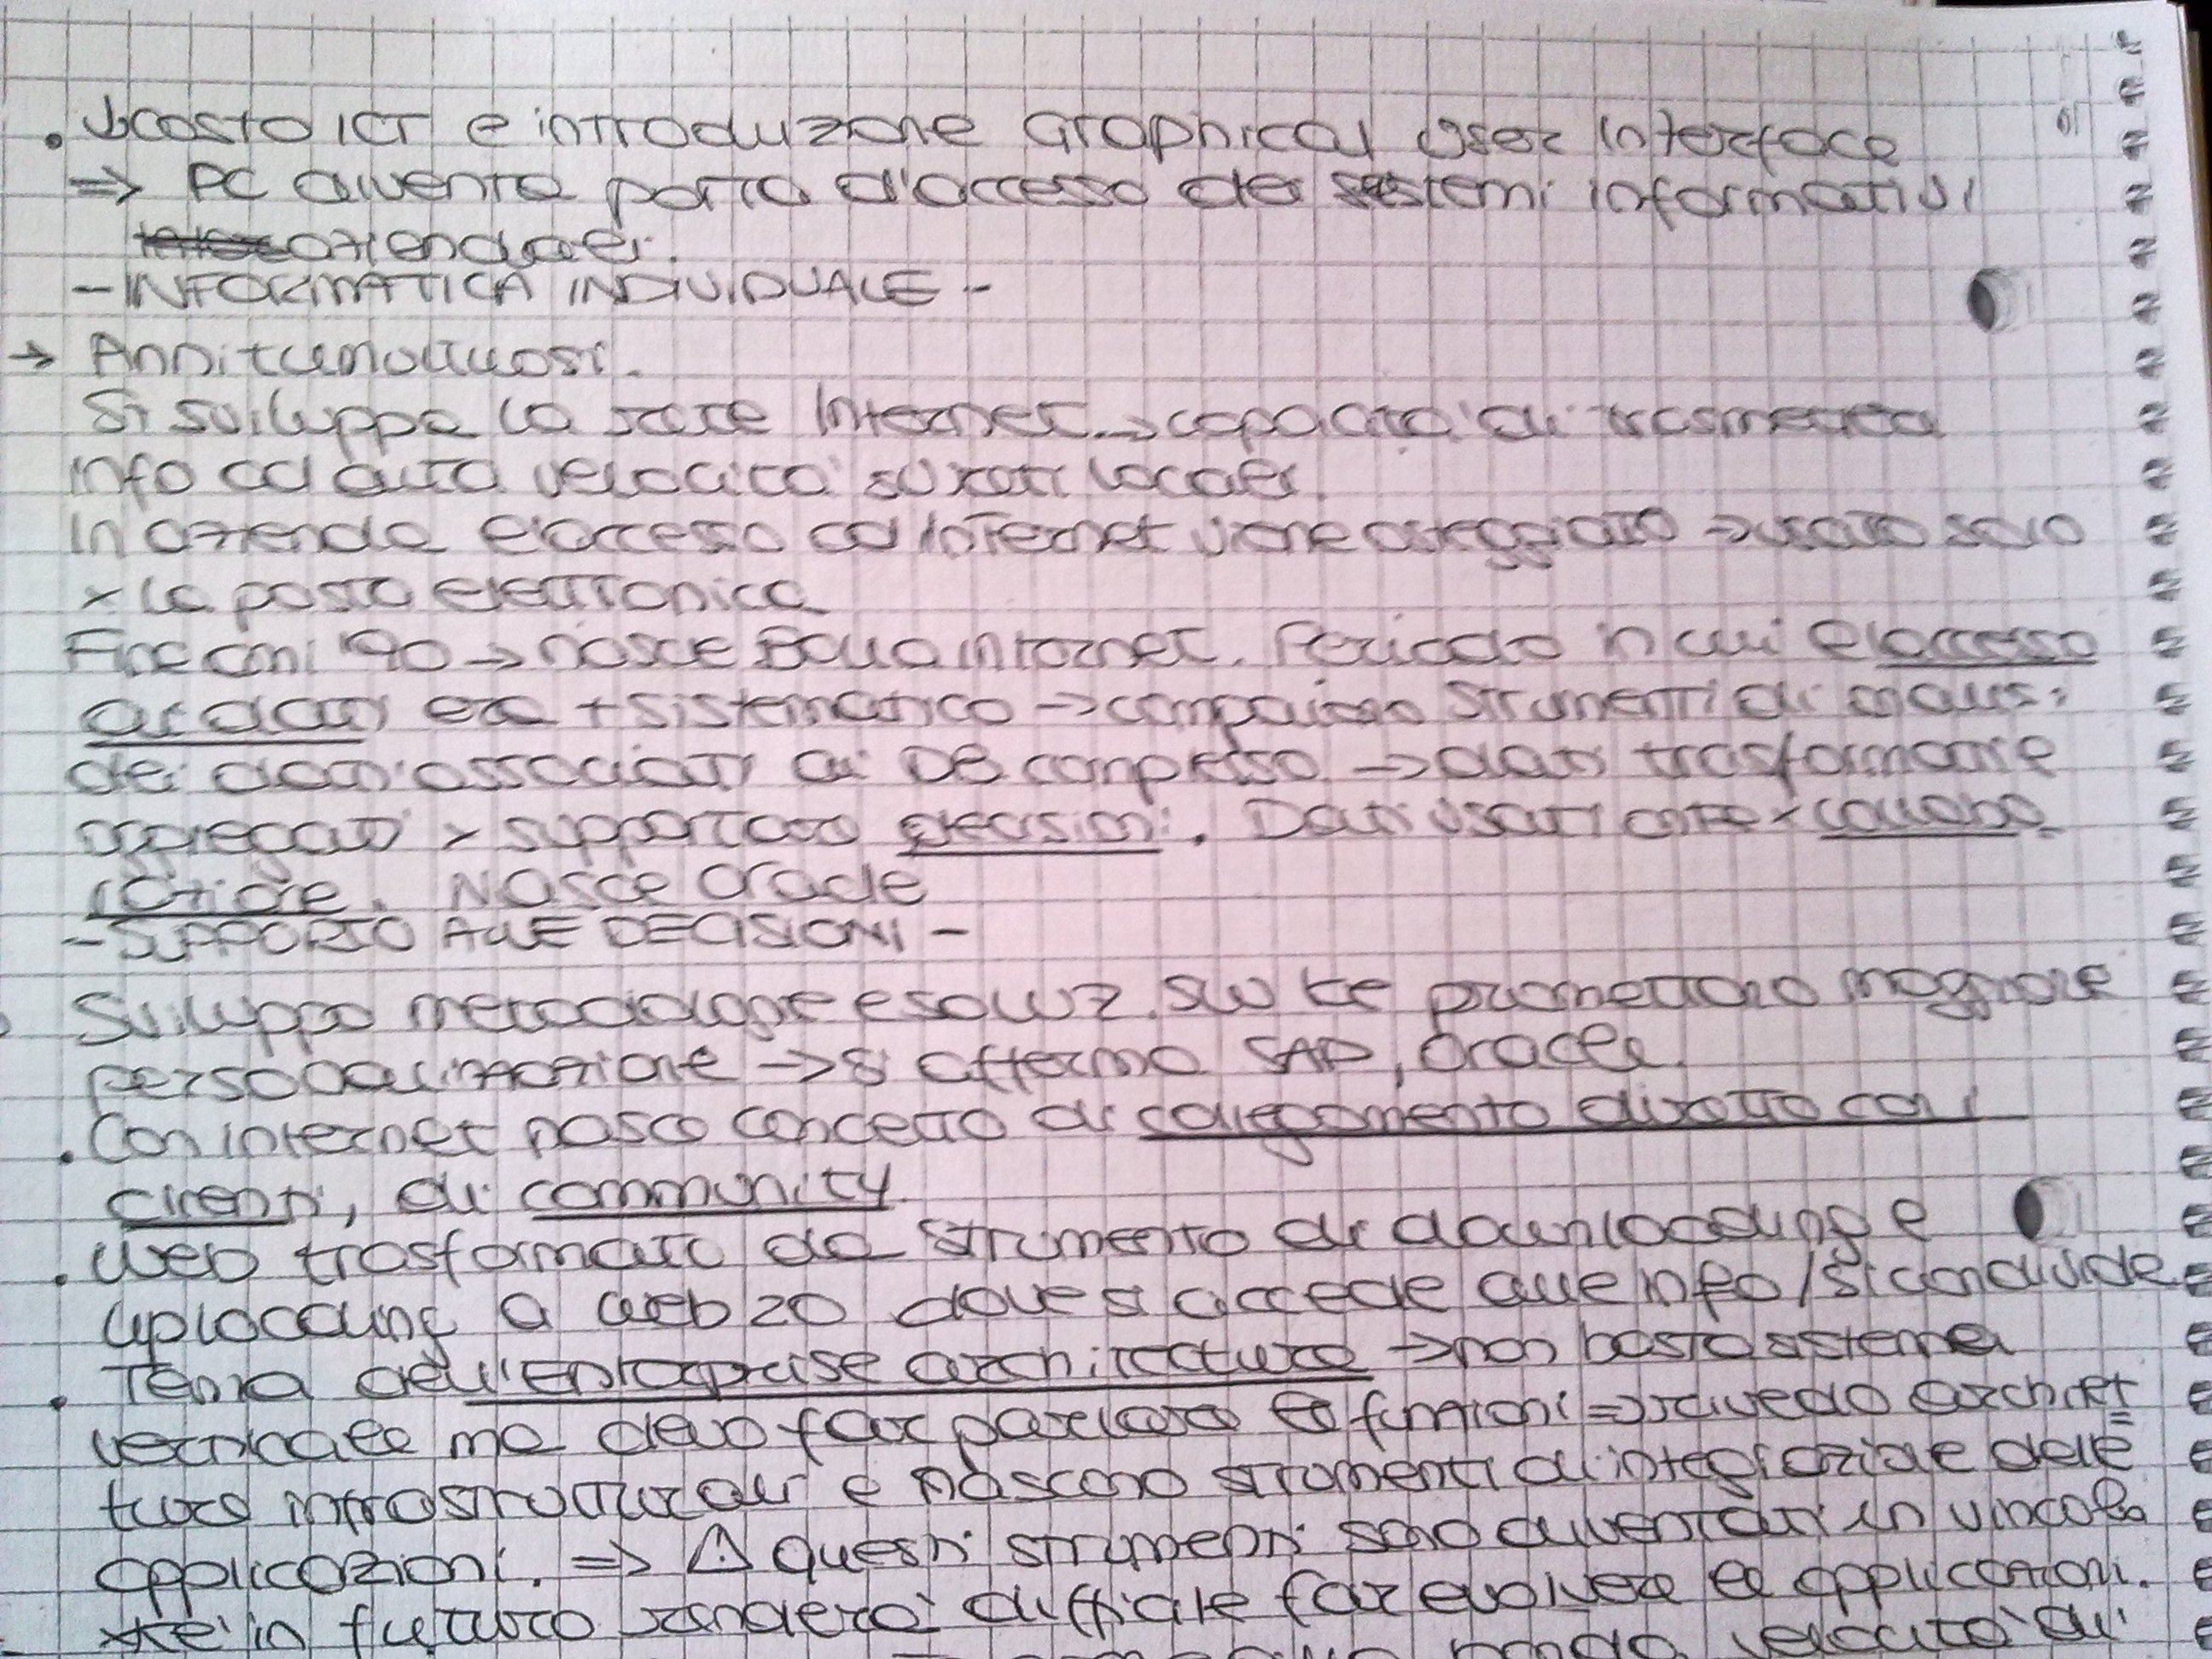 . ↓ costo ICT e introduzione Graphical User Interface
=> PC diventa porta d'accesso dei sistemi informativi
aziendali.
- INFORMATICA INDIVIDUALE -
→ Anni tumultuosi.
Si sviluppa la rete Internet → capacità di trasmettere
info ad alta velocità su reti locali.
In azienda l'accesso ad Internet viene osteggiato → usato solo
x la posta elettronica
Fine anni '90 → nasce Bolla Internet. Periodo in cui l'accesso
ai dati era + sistematico → compaiono strumenti di analisi
dei dati associati ai DB complesso → dati trasformati e
aggregati x supportare decisioni. Dati usati anche x collabo
razione. Nasce Oracle
- SUPPORTO ALLE DECISIONI -
Sviluppo metodologie e soluz. SW ke promettono maggiore
personalizzazione → si afferma SAP, Oracle.
. Con internet nasce concetto di collegamento diretto con i
clienti, di community.
. Web trasformato da strumento di downloading e
uploading a web 2.0 dove si accede alle info / si condivide
. Tema dell'enterprise architecture → non basta sistema
verticale ma devo far parlare le funzioni => rivedo architet
ture infrastrutturali e nascono strumenti di integrazione delle
applicazioni. => ⚠ questi strumenti sono diventati un vincolo
xkè in futuro renderà difficile far evolvere le applicazioni.
banda velocità di